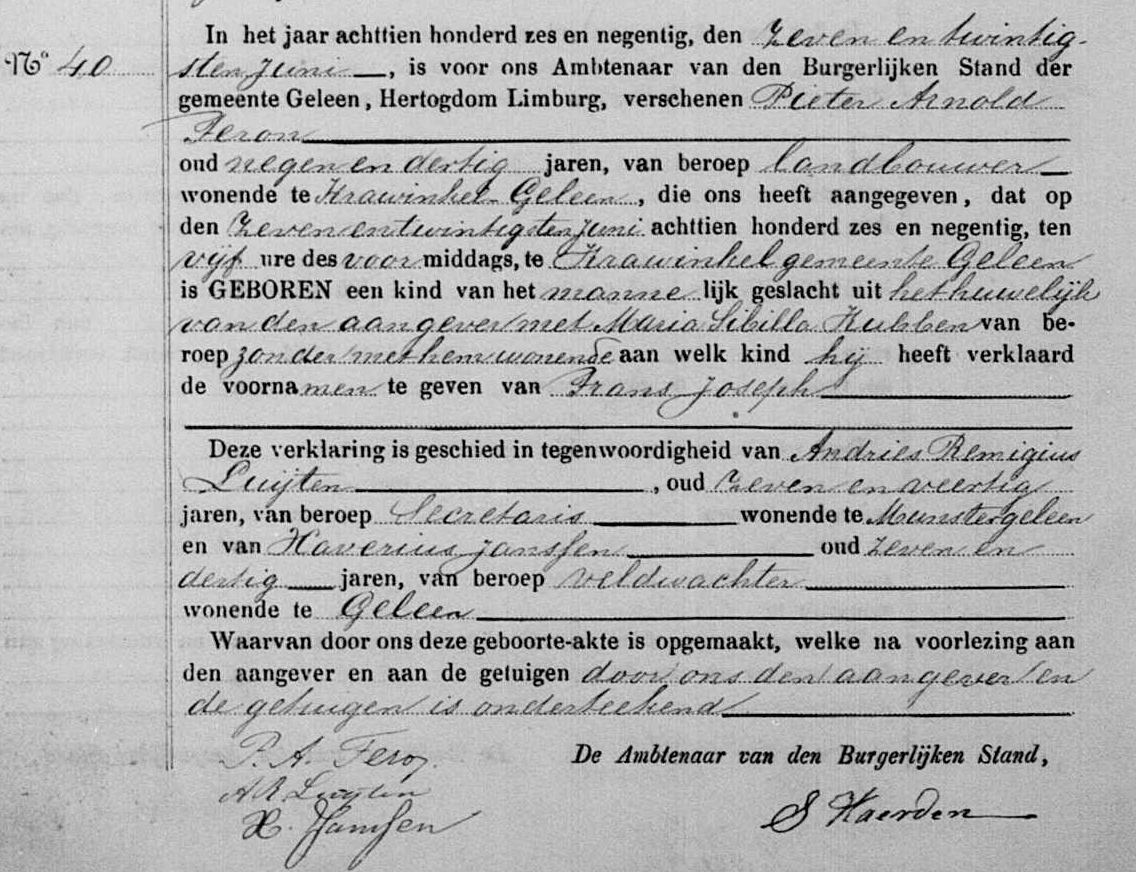 In het jaar achttien honderd zes en negentig, den Zeven en twintig-
No 40 sten Juni, is voor ons Ambtenaar van den Burgerlijken Stand der
gemeente Geleen, Hertogdom Limburg, verschenen Pieter Arnold
Feron
oud negen en dertig jaren, van beroep landbouwer
wonende te Krawinkel-Geleen, die ons heeft aangegeven, dat op
den Zeven en twintigsten Juni achttien honderd zes en negentig, ten
vijf ure des voor middags, te Krawinkel gemeente Geleen
is GEBOREN een kind van het manne lijk geslacht uit het huwelijk
van den aangever met Maria Sibilla Kubben van be-
roep zonder met hem wonende aan welk kind hij heeft verklaard
de voornamen te geven van Frans Joseph
Deze verklaring is geschied in tegenwoordigheid van Andries Remigius
Luijten, oud Zeven en veertig
jaren, van beroep Secretaris wonende te Munstergeleen
en van Xaverius Janssen oud zeven en
dertig jaren, van beroep veldwachter
wonende te Geleen
Waarvan door ons deze geboorte-akte is opgemaakt, welke na voorlezing aan
den aangever en aan de getuigen door ons den aangever en
de getuigen is onderteekend
P. A. Feron
De Ambtenaar van den Burgerlijken Stand,
A R Luijten
X. Janssen